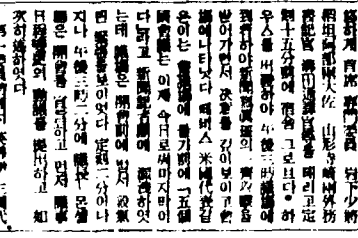 首席專門委員 岩下少將
阿部兩大佐 山形寺崎兩外務
書記官 溝田通譯官等을 데리고 定
刻十五分前에 宿舍 그로브 하
우스를 出發하야 午後三時議場에
到着하야新聞寫眞班의 一齊攻擊을
받어가면서 決意를 깊이보이고會
場에나타낫다 때비스 米國代表같
은이는 會議場에 들가기前에『五個
國會議는 이제 今日로써마지막이
다』라고 新聞記者團에 하엿
는데 議場은 開會前에 벌서 殺氣
띤 緊張을보이엇다 定刻二分이나
지나 午後三時二分에 議長 몬셀
卿은 開會를 宣言하고 먼저 議事
日程變更의 動議를 提出하고 如
次히 述하엿다